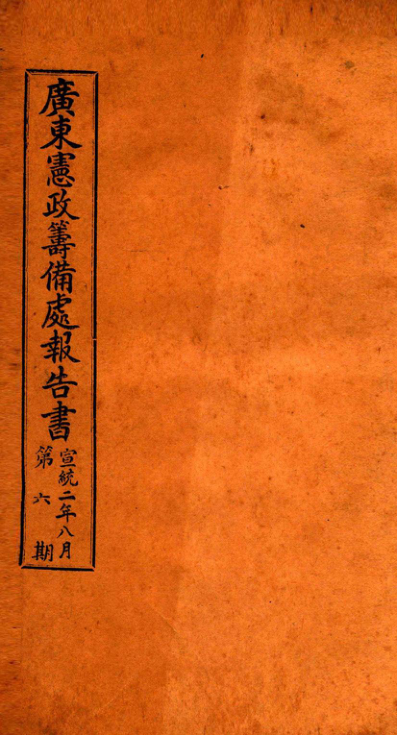 廣東憲政籌備處報告書
宣統二年八月
第六期